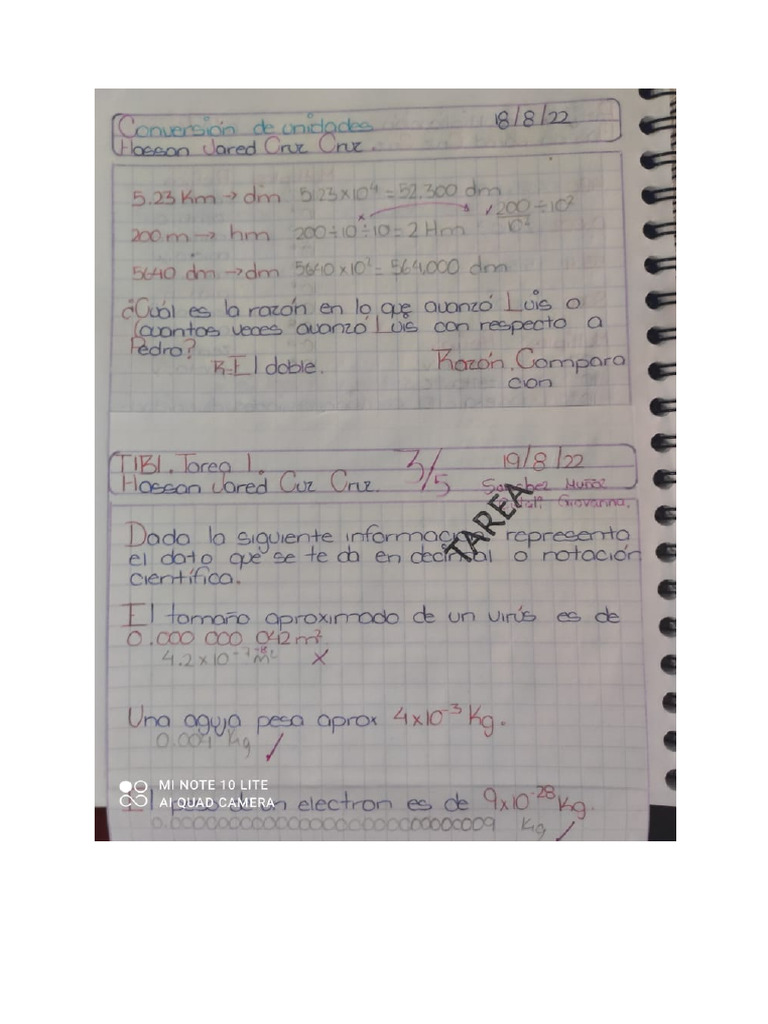 Conversión de unidades 18/8/22
Hassan Jared Cruz Cruz.
5.23 Km → dm 5.23x10⁴ = 52,300 dm
200 m → hm 200÷10÷10= 2 Hm 200/10² ÷10²
5640 dm → dm 5640x10² = 564,000 dm
¿Cuál es la razón en lo que avanzó Luis o
(cuantas veces avanzó Luis con respecto a
Pedro?
R= El doble. Razón. Compara
cion
T1B1. Tarea 1. 3/5 19/8/22
Hassan Jared Cruz Cruz. Sanchez Muñoz
Giovanna.
TAREA
Dada la siguiente información representa
el dato que se te da en decimal o notación
científica.
El tamaño aproximado de un virús es de
0.000 000 042 m²
4.2x10
Una aguja pesa aprox 4x10⁻³ Kg.
0.004 Kg
MI NOTE 10 LITE
AI QUAD CAMERA
El peso de un electron es de 9x10⁻²⁸ Kg.
Kg